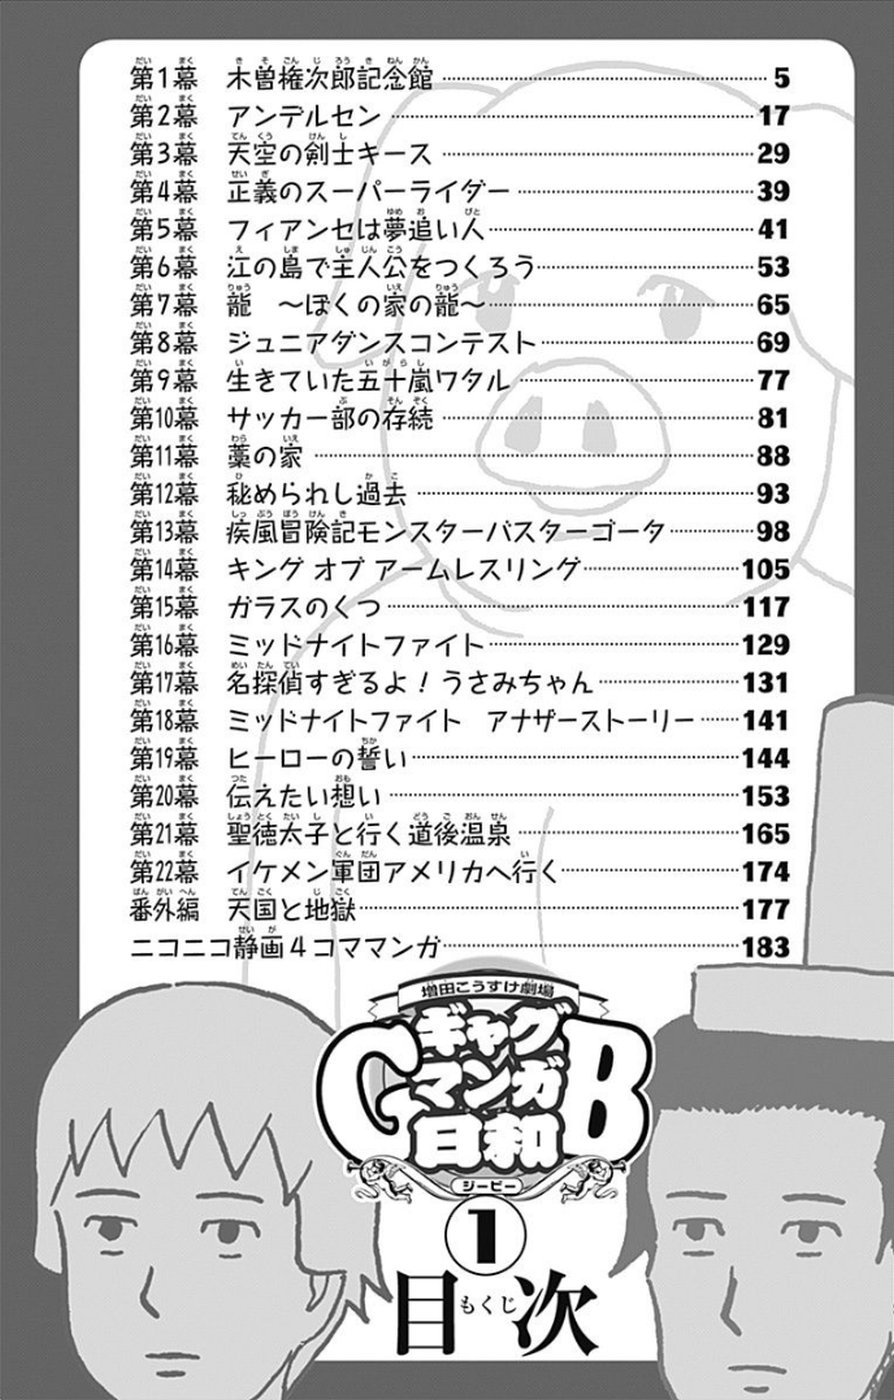 第1幕 木曽権次郎記念館 5
第2幕 アンデルセン 17
第3幕 天空の剣士キース 29
第4幕 正義のスーパーライダー 39
第5幕 フィアンセは夢追い人 41
第6幕 江の島で主人公をつくろう 53
第7幕 龍 〜ぼくの家の龍〜 65
第8幕 ジュニアダンスコンテスト 69
第9幕 生きていた五十嵐ワタル 77
第10幕 サッカー部の存続 81
第11幕 藁の家 88
第12幕 秘められし過去 93
第13幕 疾風冒険記モンスターバスターゴータ 98
第14幕 キング オブ アームレスリング 105
第15幕 ガラスのくつ 117
第16幕 ミッドナイトファイト 129
第17幕 名探偵すぎるよ!うさみちゃん 131
第18幕 ミッドナイトファイト アナザーストーリー 141
第19幕 ヒーローの誓い 144
第20幕 伝えたい想い 153
第21幕 聖徳太子と行く道後温泉 165
第22幕 イケメン軍団アメリカへ行く 174
番外編 天国と地獄 177
ニコニコ静画4コママンガ 183
増田こうすけ劇場
ギャグ
マンガ
日和
GB
ジービー
1
目次
もくじ